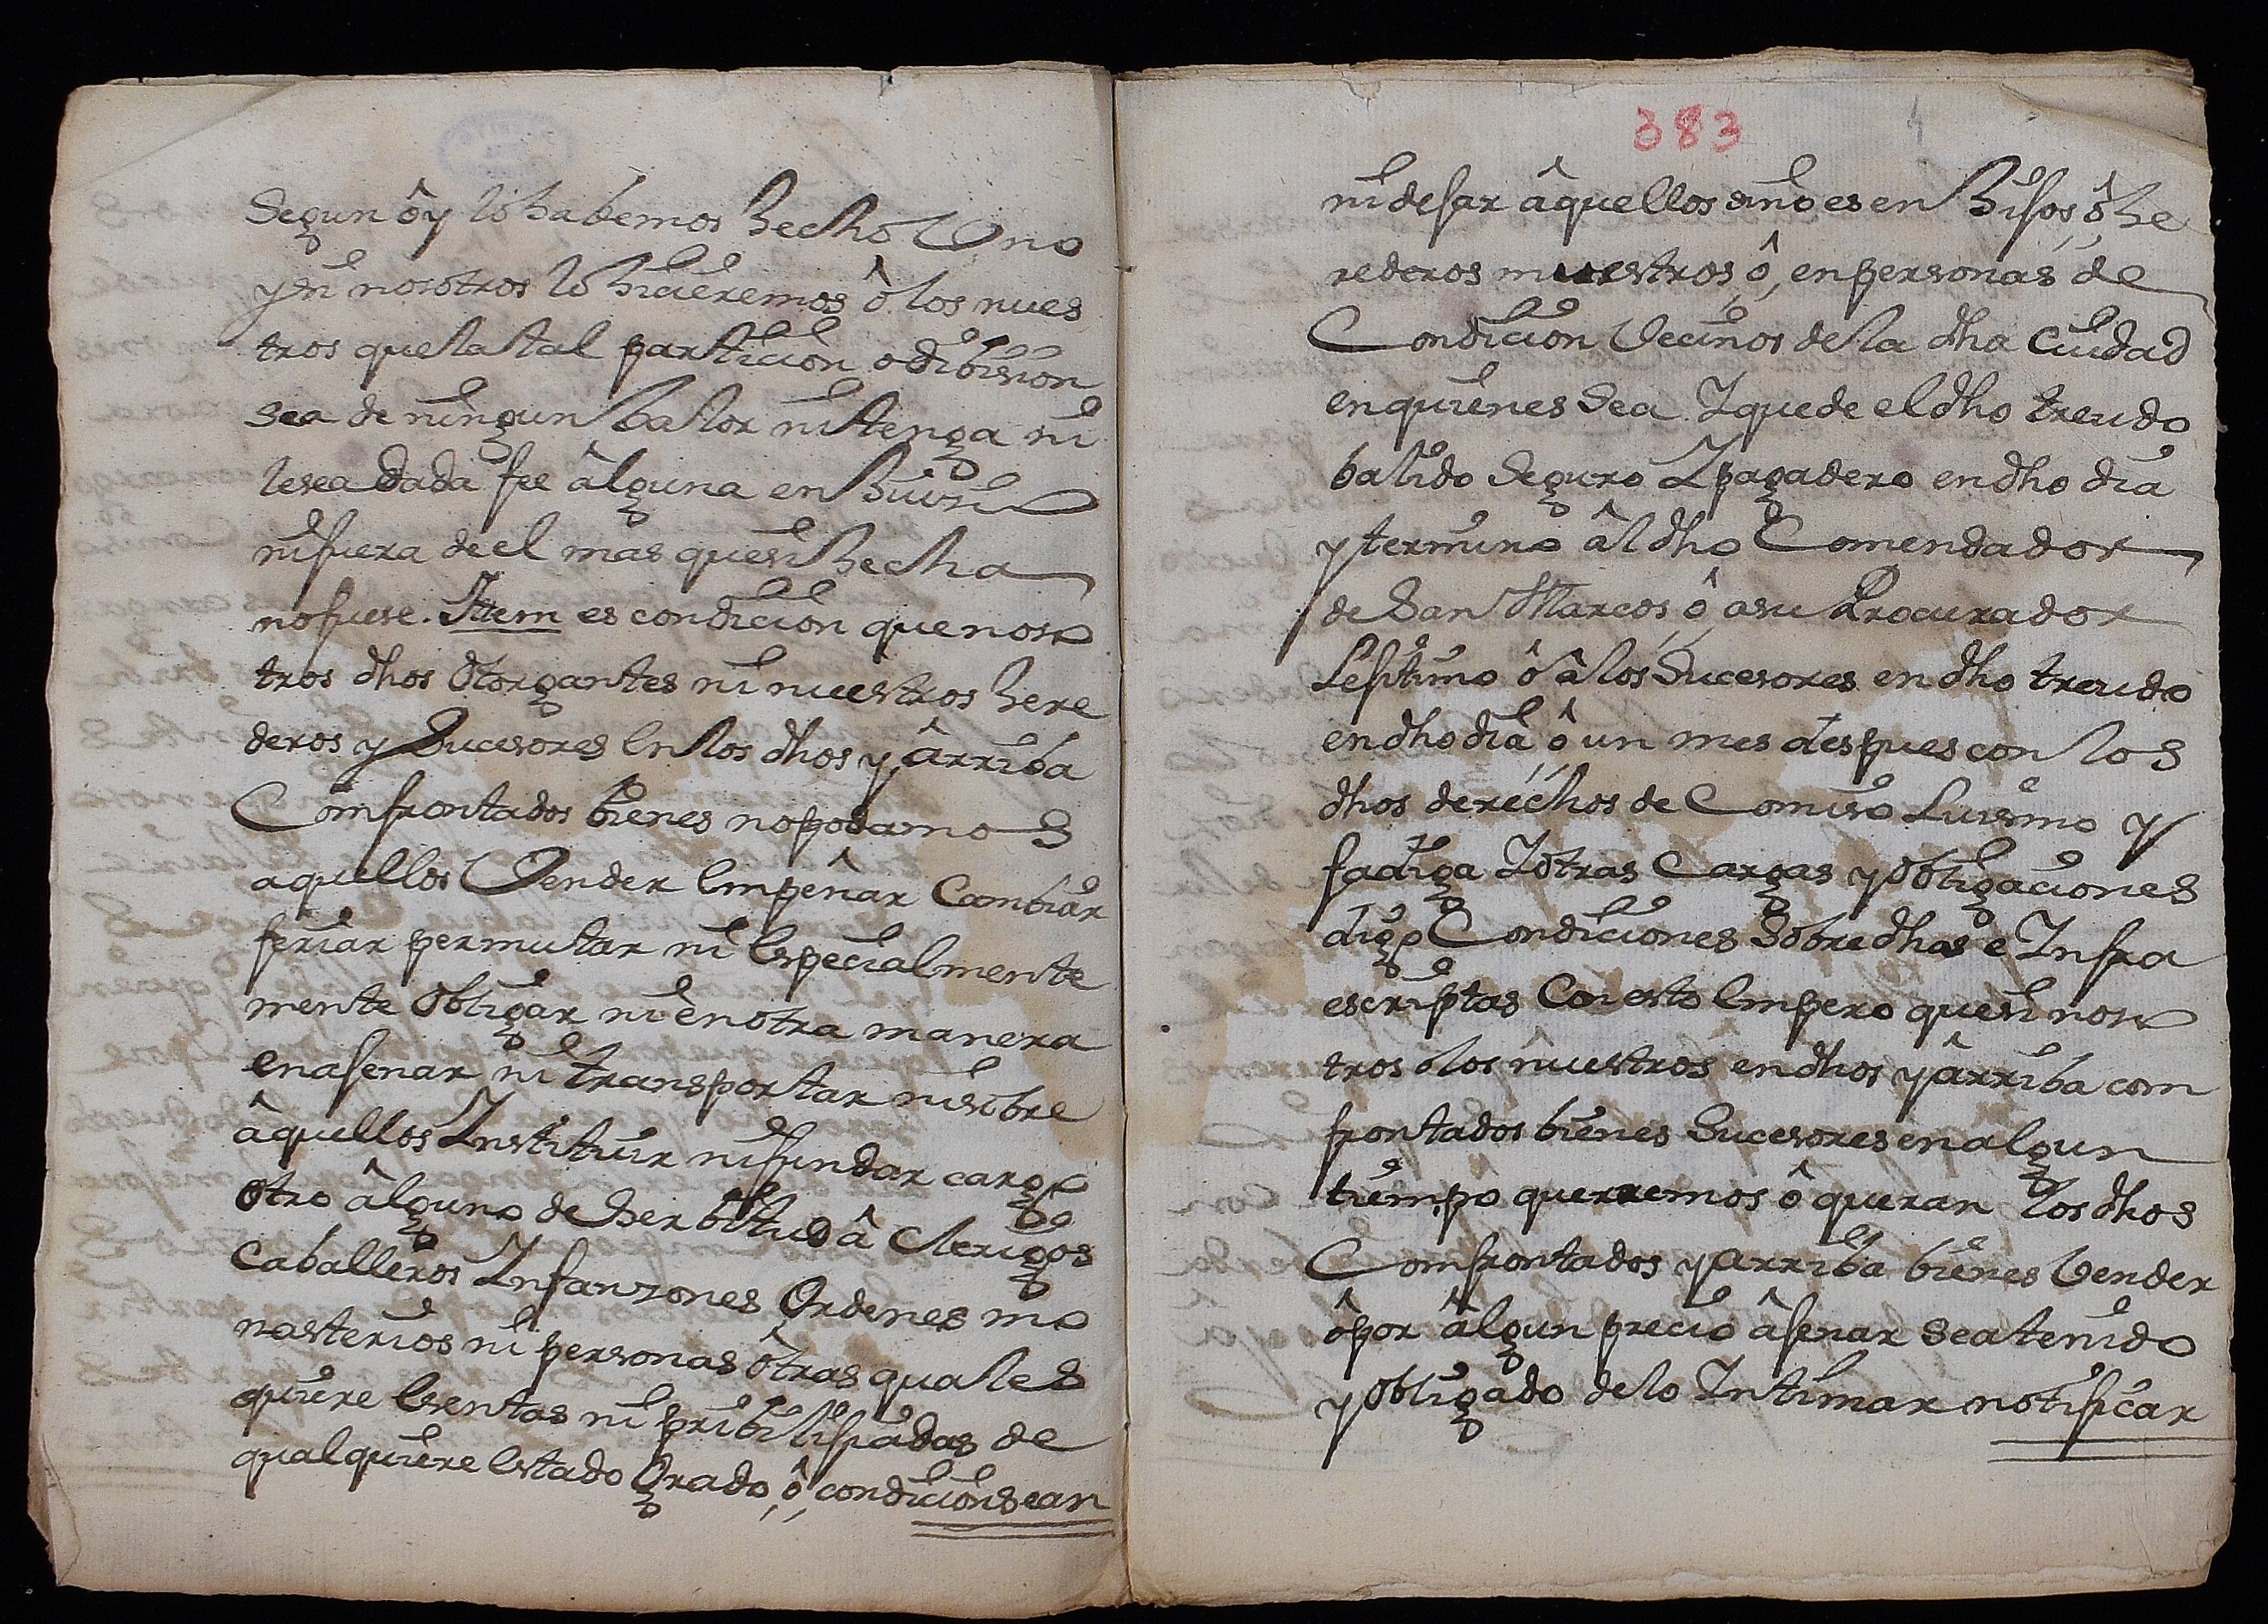 Segun ôy lo habemos hecho Ô no
y si nosotros lo hicieremos ô los nues
tros que la tal particion o dibision
sea de ningun balor ni tenga ni
le sea dada fee âlguna en Juicio
ni fuera de el mas que si hecha
no fuese. Ittem es condicion que noso
tros dhos Otorgantes ni nuestros here
deros y Sucesores en los dhos y ârriba
Comfrontados bienes no podamos
aquellos Vender empeñar Cambiar
feriar permutar ni especialmente
mente Obligar ni en otra manera
enajenar ni transportar ni sobre
âquellos Instituir ni fundar cargo
Otro âlguno de Serbitud â Clerigos
Caballeros Infanzones Ordenes mo
nasterios ni personas ôtras quales
quiere esentas ni pribilijiadas de
qualquiere estado Grado, ô, condicion sean
383
ni dejar âquellos sino es en hijos, ô he
rederos nuestros, ô, en personas de
Condicion Vecinos de la dha Ciudad
en quienes Sea Y quede el dho treudo
balido Seguro Y pagadero en dho dia
y termino âl dho Comendador
de San Marcos, ô, a su Procurador
Lejitimo ô â los Sucesores en dho treudo
en dho dia, ô un mes despues con los
dhos derechos de Comiso Luismo y
fadiga Y otras Cargas y Obligaciones
digo Condiciones Sobre dhas e Infra
escriptas Con esto empero que si noso
tros o los nuestros en dhos y ârriba com
frontados bienes Sucesores en algun
tiempo querremos ô queran los dhos
Comfrontados y arriba bienes Vender
ô por âlgun precio âjenar sea tenido
y Obligado de lo Intimar notificar